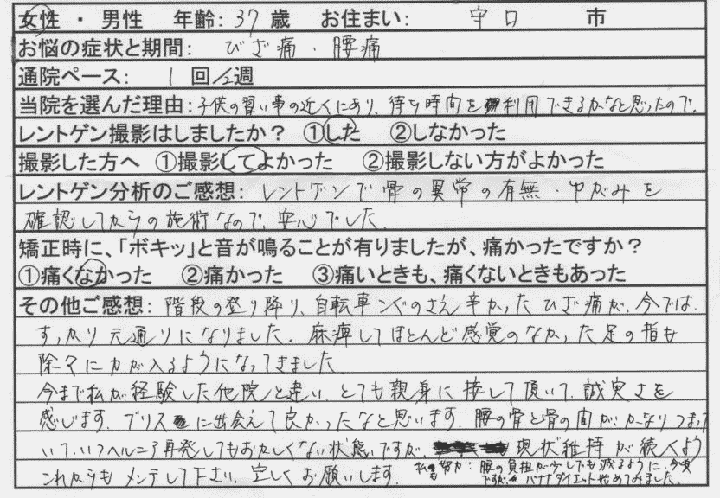 女性 ・ 男性　年齢: 37 歳　お住まい: 守口 市
お悩の症状と期間: ひざ痛・腰痛
通院ペース: 1 回/2週
当院を選んだ理由: 子供の習い事の近くにあり、待ち時間を利用できるかなと思ったので。
レントゲン撮影はしましたか? ①した ②しなかった
撮影した方へ ①撮影してよかった ②撮影しない方がよかった
レントゲン分析のご感想: レントゲンで骨の異常の有無・ゆがみを
確認してからの施術なので、安心でした。
矯正時に、「ボキッ」と音が鳴ることが有りましたが、痛かったですか?
①痛くなかった ②痛かった ③痛いときも、痛くないときもあった
その他ご感想: 階段の登り降り、自転車こぐのさえ辛かったひざ痛が、今では
すっかり元通りになりました。麻痺してほとんど感覚のなかった足の指も
除々に力が入るようになってきました
今まで私が経験した他院と違い、とても親身に接して頂いて、誠実さを
感じます。ブリスに出会えて良かったなと思います。腰の骨と骨の間がかなりつまって
いて、いつヘルニア再発してもおかしくない状態ですが、現状維持が続くよう
これからもメンテして下さい。宜しくお願いします。
私も努力: 腰の負担が少しでも減るように、今更
ですがバナナダイエット始めてみました。